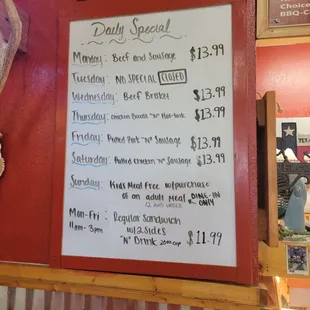 Daily Special
Monday: Beef and Sausage $13.99
Tuesday: NO SPECIAL CLOSED
Wednesday: Beef Brisket $13.99
Thursday: Chicken Breast "N" Hot-Link $13.99
Friday: Pulled Pork "N" Sausage $13.99
Saturday: Pulled Chicken "N" Sausage $13.99
Sunday: Kids Meal Free w/purchase
of an adult Meal DINE-IN
ONLY
12 AND UNDER
Mon-Fri: Regular Sandwich
11am-3pm w/2 Sides
"N" Drink 20oz cup $11.99
Choice
BBQ-C
TEXA